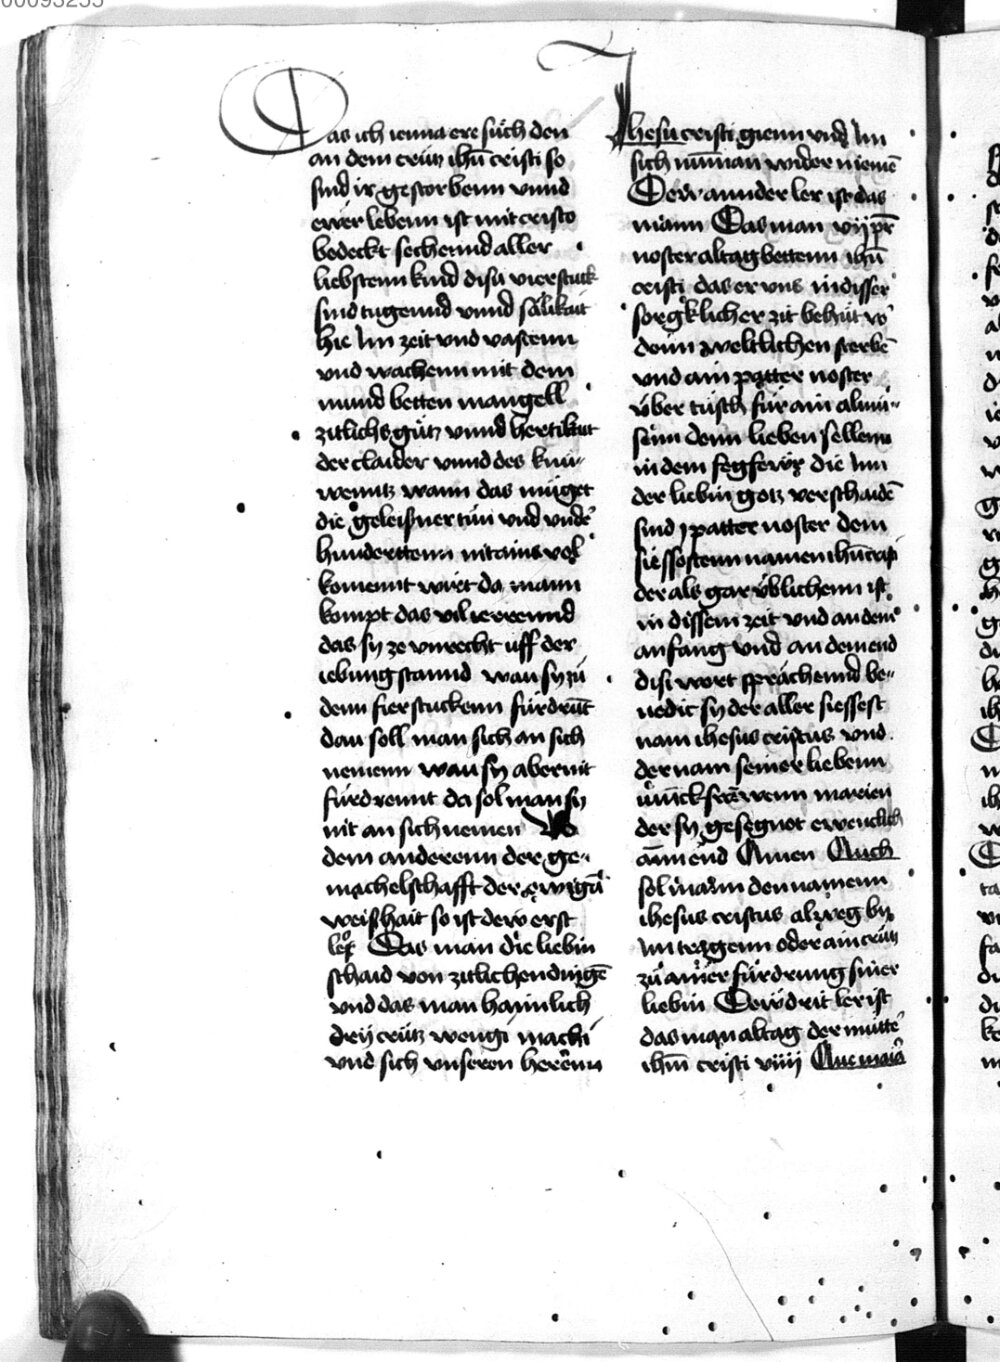 00093255
Das ich ienna ere such den
an dem crütz ihū cristi so
sind ir gestorbenn vnnd
ewer lebenn ist mit cristo
bedeckt sechennd aller
liebstenn kind disu vier stuck
sind tugennd vnnd sälikait
hie Inn zeit vnd vastenn
vnd wachenn mit dem
mund betten mangell
zitlichs gůtz vnnd hertikait
der claider vnnd des knü-
wenntz wann das müget
die geleisner tůn vnd vnder
hunderttenn nit ains vol
koment wirt da mann
kompt das vil ierrennd
das sy ze vnrecht uff der
iebung stannd wan sy zů
denn fier stuckenn fürdrūt
dan soll man sich an sich
nemenn wan sy aber nit
fürdrennt da sol man sy
nit an sich nemen
dem anderenn der ge-
machelschafft der ewigā
weishait so ist dew erst
ler Das man die liebin
schaid von zitlichen dingē
vnd das man haimlich
dry crütz wengi machi
vnd sich vnseren herēnn
Ihesu cristi gienn vnd Inn
sich nūman wider niemē
Dew annder ler ist das
mann Das man vij pr̄
noster altag bettenn ihū
cristi das er vns in disser
sorgklicher zit behüt vō
denn weltlichen sterbē
vnd ain patter noster
über tüsch für ain almů-
senn denn lieben sellenn
in dem fegfewr die Inn
der liebin gotz verschaidē
sind j patter noster dem
siessostenn namen ihū cristi
der als gar üblichenn ist
in dissem zeit vnd an dem
anfang vnd an dem end
disi wort sprächennd be-
nedic sy der aller siessest
nam ihesus cristus vnd
der nam seiner liebenn
iunckfrawenn marien
der sy gesegnot ewenclich
ānn end Amen Auch
sol mann den namenn
ihesus cristus alweg by
Inn tragenn oder ain crütz
zů ainer fürdrung siner
liebin Dew drit ler ist
das man altag der mütte
ihū cristi viiij Aue maiā